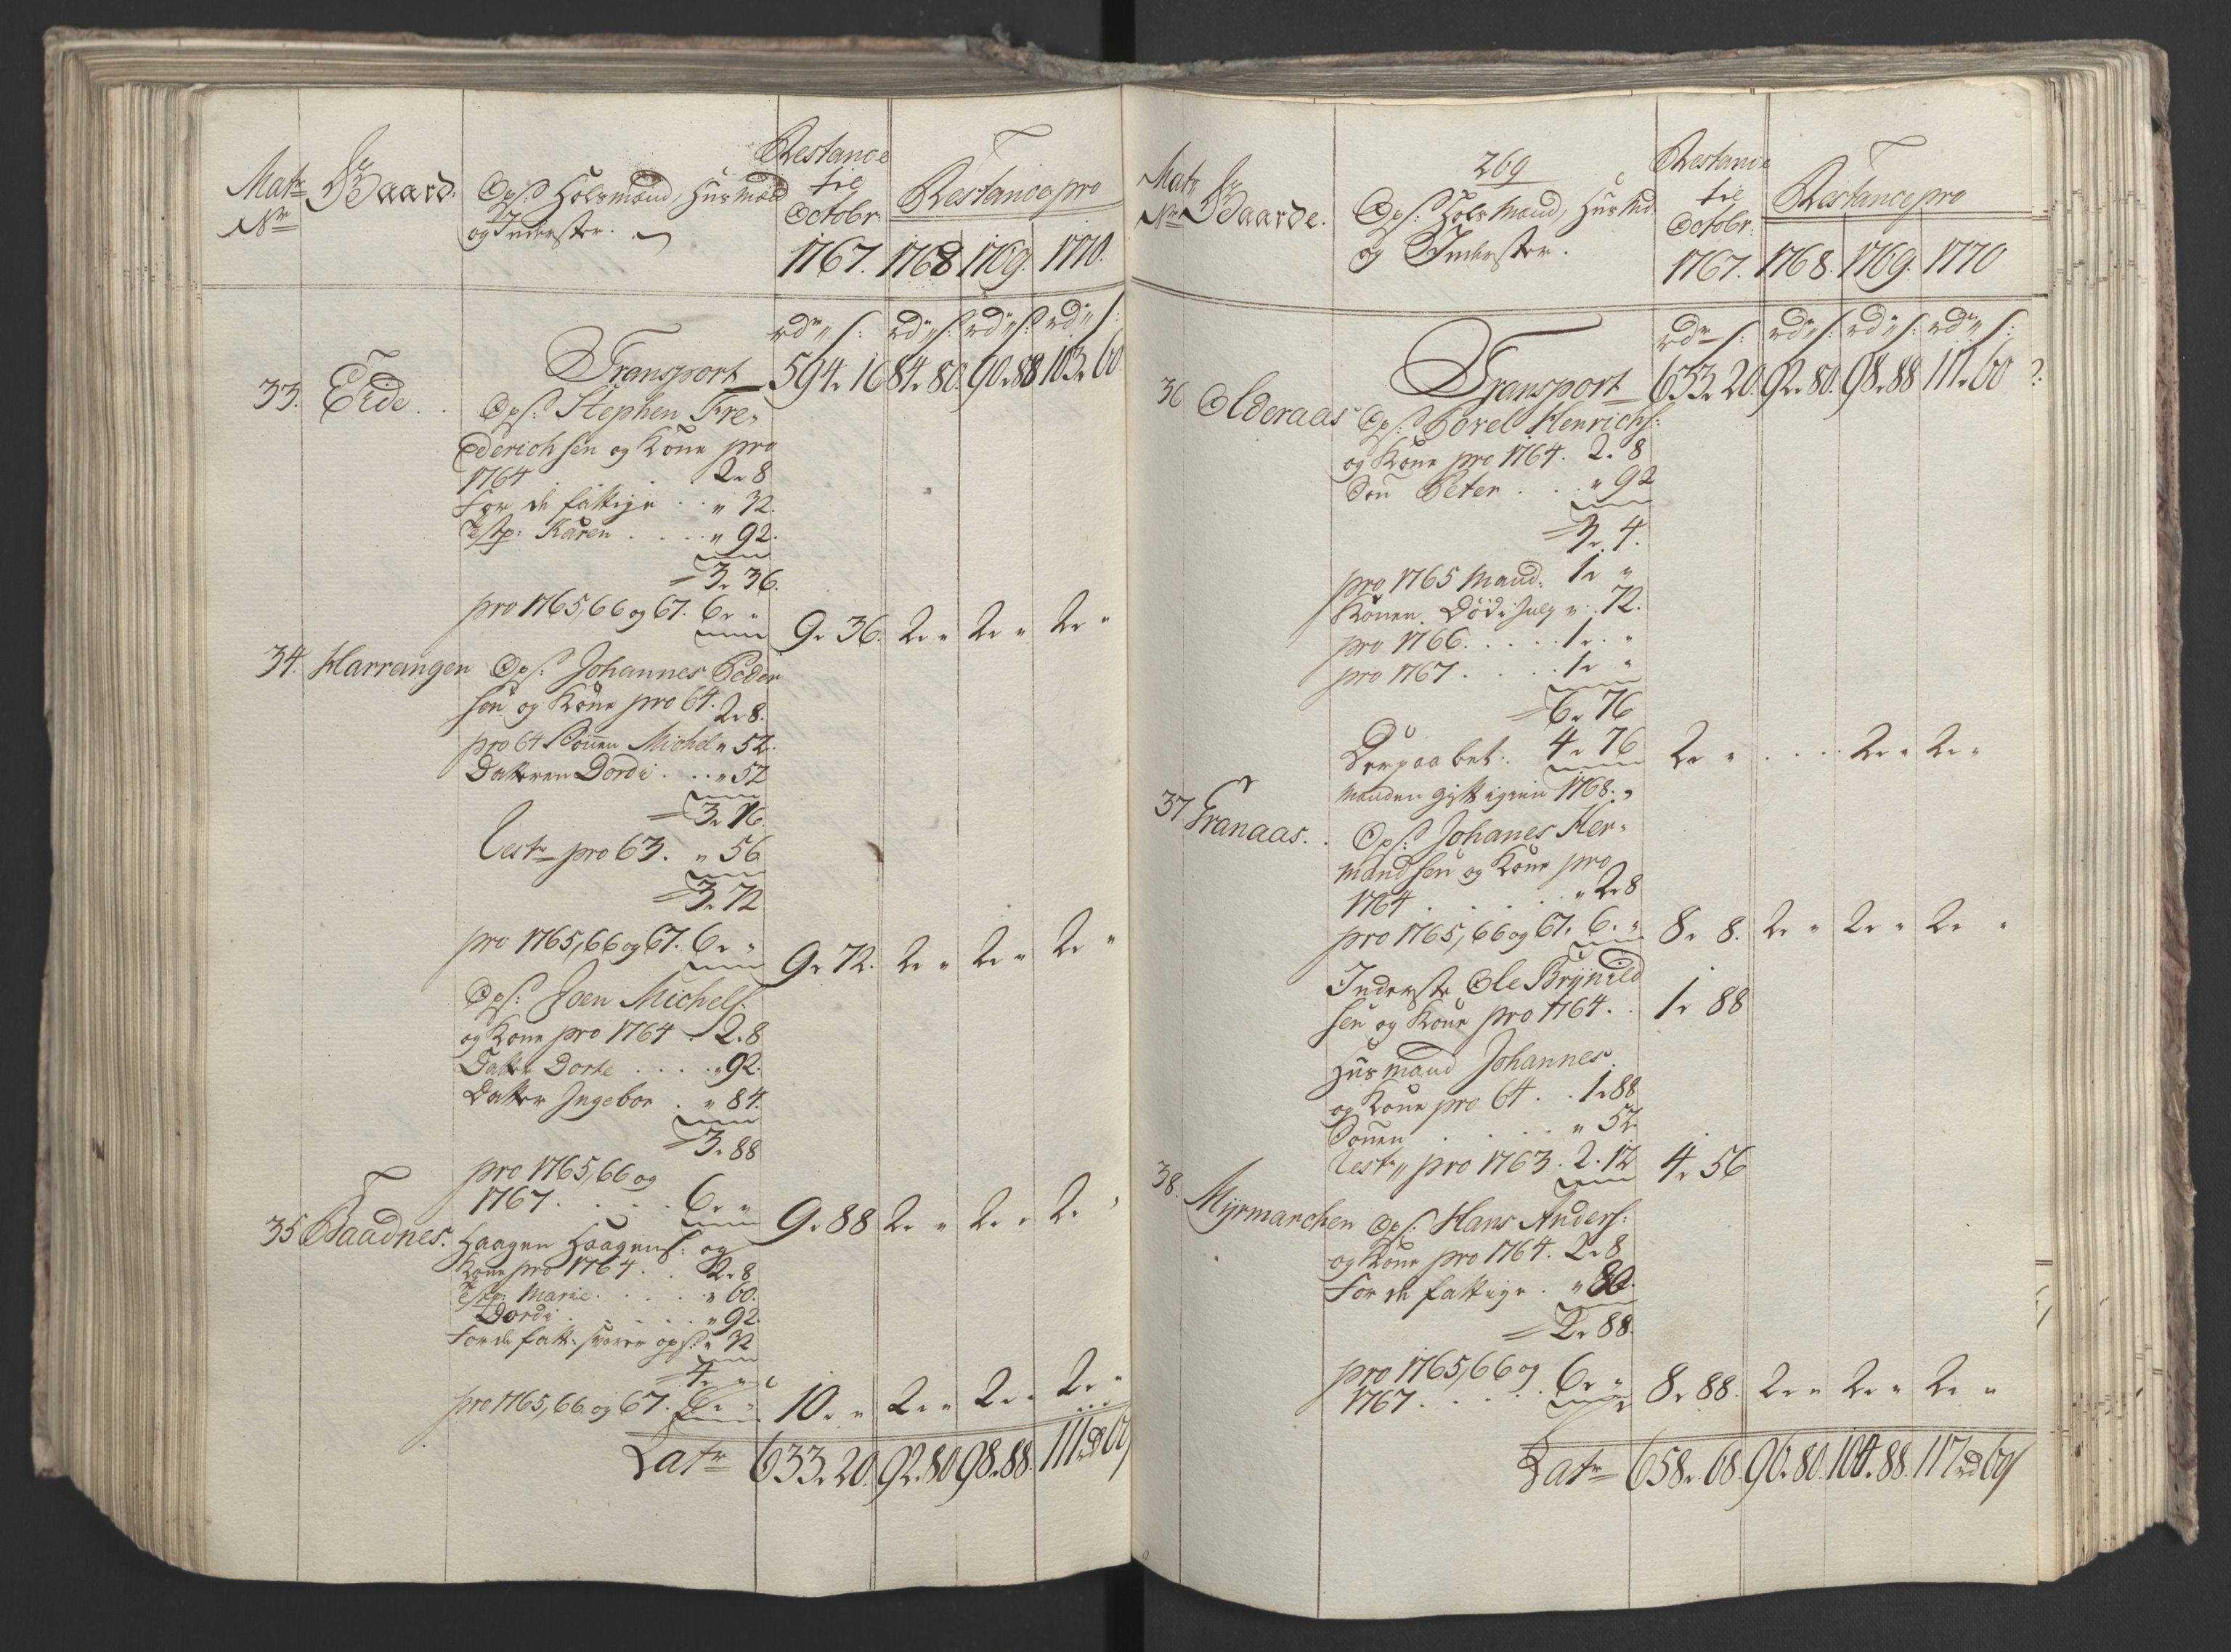 Matr Nr
Gaard:
Ops: Holsmænd, Husmænd
og Inderster.
Restance
til
Octobr:
1767.
Restance pro
1768 1769. 1770.
rdr s: rdr s: rdr s: rdr s:
Transport 594. 16 84. 80. 90. 88 103. 60
33. Eide. . Ops: Stephen Fre-
derichsen og Kone pro
1764 . . . 2. 8
For de fattige . . " 32.
 Karen . . . . " 92.
3. 36.
pro 1765, 66 og 67. 6. " 9. 36. 2. " 2. " 2. "
34. Harrangen Ops: Johannes Peder
sen og Kone pro 64. 2. 8.
pro 64 Sönnen Michel " 52.
Datteren Dordi . . . " 52
3. 16.
Rest pro 63. " 56
3. 72
pro 1765, 66 og 67. 6. " 9. 72. 2. " 2. " 2. "
Ops: Joen Michels:
og Kone pro 1764 . 2. 8
Datter Dorte . . . . " 92.
Datter Ingebor . " 84.
3. 88
pro 1765, 66 og
1767. . . . . 6. " 9. 88 2. " 2. " 2. "
35 Baadnes. Haagen Haagens: og
Kone pro 1764 . . 2. 8
 Marie. . . . . " 60.
Dordi . . . . . " 92.
For de fatt: svarer ops: " 32
4. "
pro 1765, 66 og 67. 6. " 10. " 2. " 2. " 2. "
Latr 633. 20. 92. 80 98. 88. 111 rd 60
269
Matr Nr
Gaarde.
Ops: Holsmænd, Husmd.
og Inderster.
Restance
til
Octobr:
1767.
Restance pro
1768. 1769. 1770
rdr s: rdr s: rdr s: rdr s:
Transport 633. 20. 92. 80. 98. 88 111. 60
36 Olderaas Ops: Povel Henrichs:
og Kone pro 1764. 2. 8
Søn Peter . . . " 92
3. 4.
pro 1765 Mand. 1. "
Konen Död " 72.
pro 1766. . . . . 1. "
pro 1767. . . . 1. "
6. 76
Derpaa bet: 4. 76 2. " . . . . 2. " 2. "
Manden gift igien 1768.
37 Granaas. . Ops: Johanes Her-
mandsen og Kone pro
1764 . . . . . " 2. 8
pro 1765, 66 og 67. 6. " 8. 8. 2. " 2. " 2. "
Inderste Ole Brynild
sen og Kone pro 1764. . 1. 88
Husmand Johannes
og Kone pro 64 . . 1. 88
Sønen . . . . " 52.
Rest " pro 1763. 2. 12 4. 56
38. Myrmarchen Ops: Hans Anders:
og Kone pro 1764. 2. 8
For de fattige . " 80.
2. 88.
pro 1765, 66 og
1767. . . . 6. " 8. 88. 2. " 2. " 2. "
Latr 658. 68. 96. 80. 104. 88. 117 rd 60